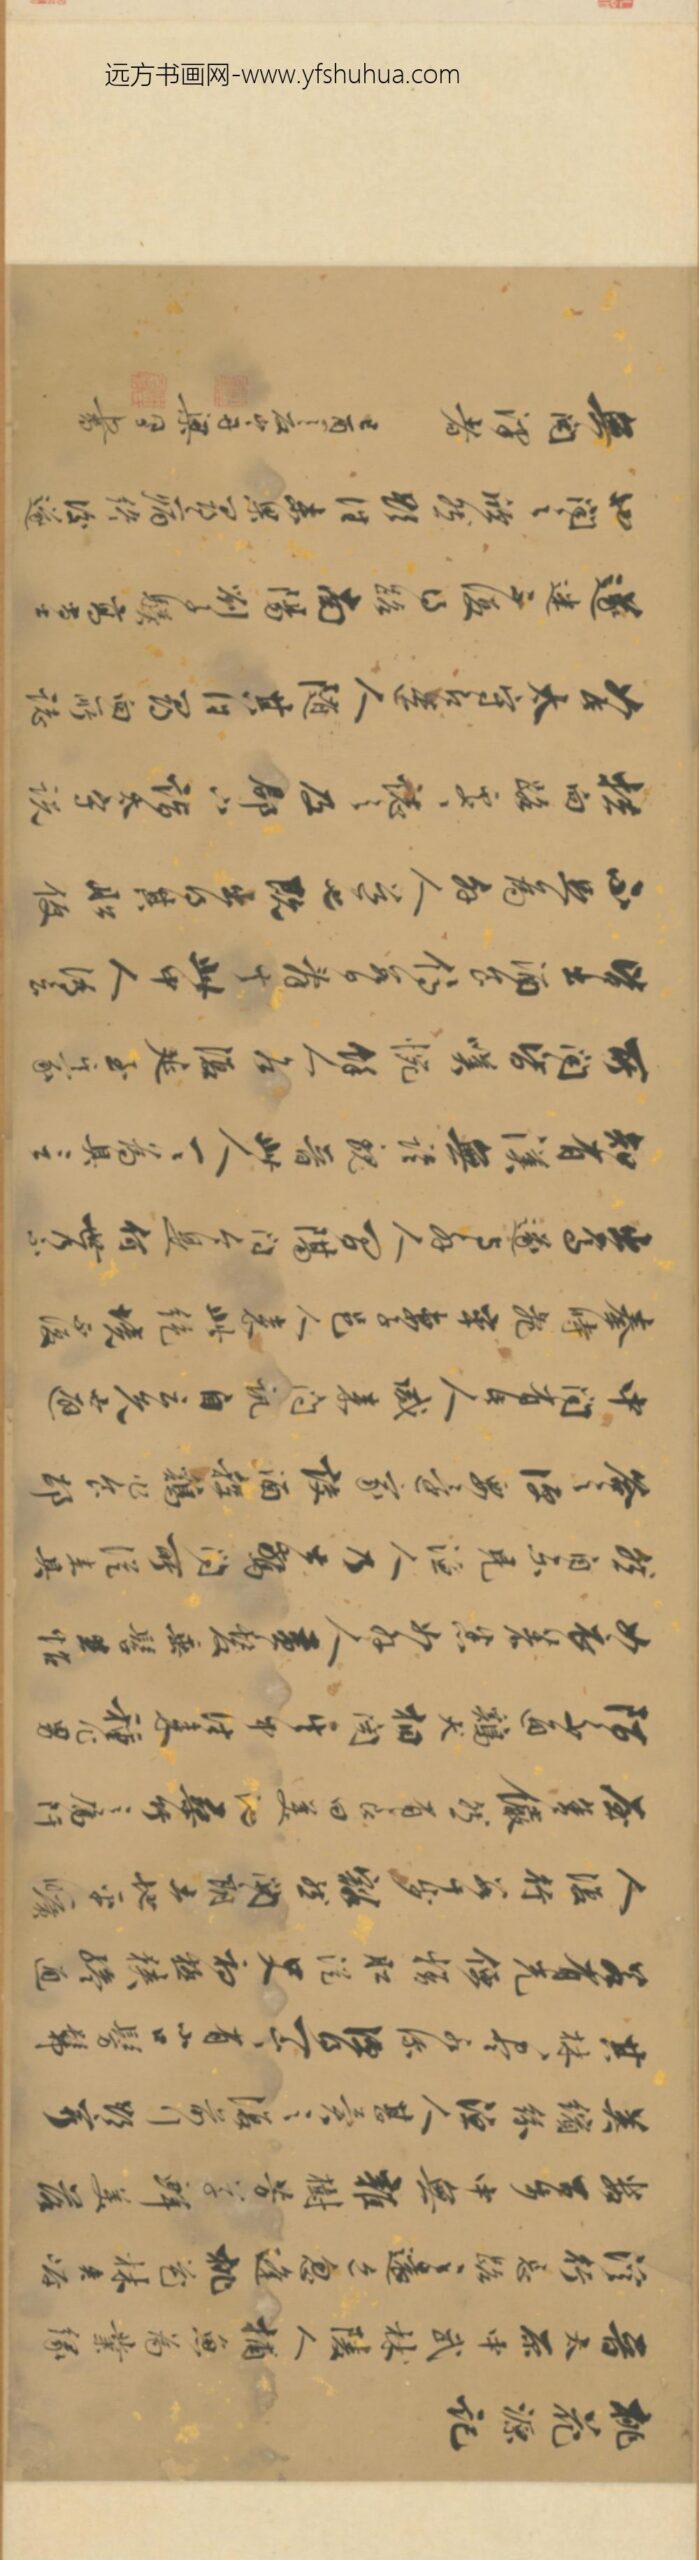 远方书画网-www.yfshuhua.com
桃花源记
晉太原中武林陵人捕魚為業緣
溪行忘路之遠近忽逢桃花林夾岸
數百步中無雜樹芳草鮮美落
英繽紛漁人甚異之復前行欲窮
其林、盡水源便得一山、有小口髣髴
若有光便捨船從口入初極狹纔通
人復行數十步豁然開朗土地平曠
屋舍儼然有良田美池桑竹之屬阡
陌交通鷄犬相聞其中往來種作男
女衣著悉如外人黃髮垂髫並怡
然自樂見漁人乃大驚問所從來具
答之便要還家設酒殺鷄作食村
中聞有此人咸來問訊自云先世避
秦時亂率妻子邑人來此絕境不復
出焉遂與外人間隔問今是何世乃不
知有漢無論魏晉此人一、為具言
所聞皆嘆惋餘人各復延至其家
皆出酒食停數日辭去此中人語云
不足為外人道也既出得其船便
扶向路處、誌之及郡下詣太守說
如此太守即遣人隨其往尋向所誌
遂迷不復得路南陽劉子驥高尚士
也聞之欣然規往未果尋病終後遂
無問津者